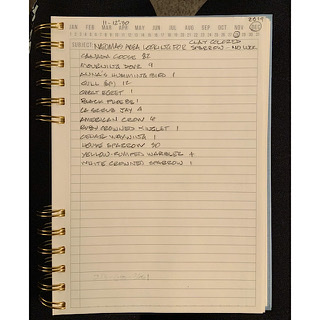 11-12:30
2019
JAN FEB MAR APR MAY JUN JUL AUG SEP OCT NOV DEC
CLAY COLORED
SUBJECT: AREA LOOKING FOR SPARROW - NO LUCK
CANADA GOOSE 82
MOURNING DOVE 9
ANNA'S HUMMINGBIRD 1
GULL SP) 12
GREAT EGRET 1
BLACK PHOEBE 1
CA SCRUB JAY 4
AMERICAN CROW 6
RUBY CROWNED KINGLET 1
CEDAR WAXWING 1
HOUSE SPARROW 30
YELLOW-RUMPED WARBLER 4
WHITE CROWNED SPARROW 1